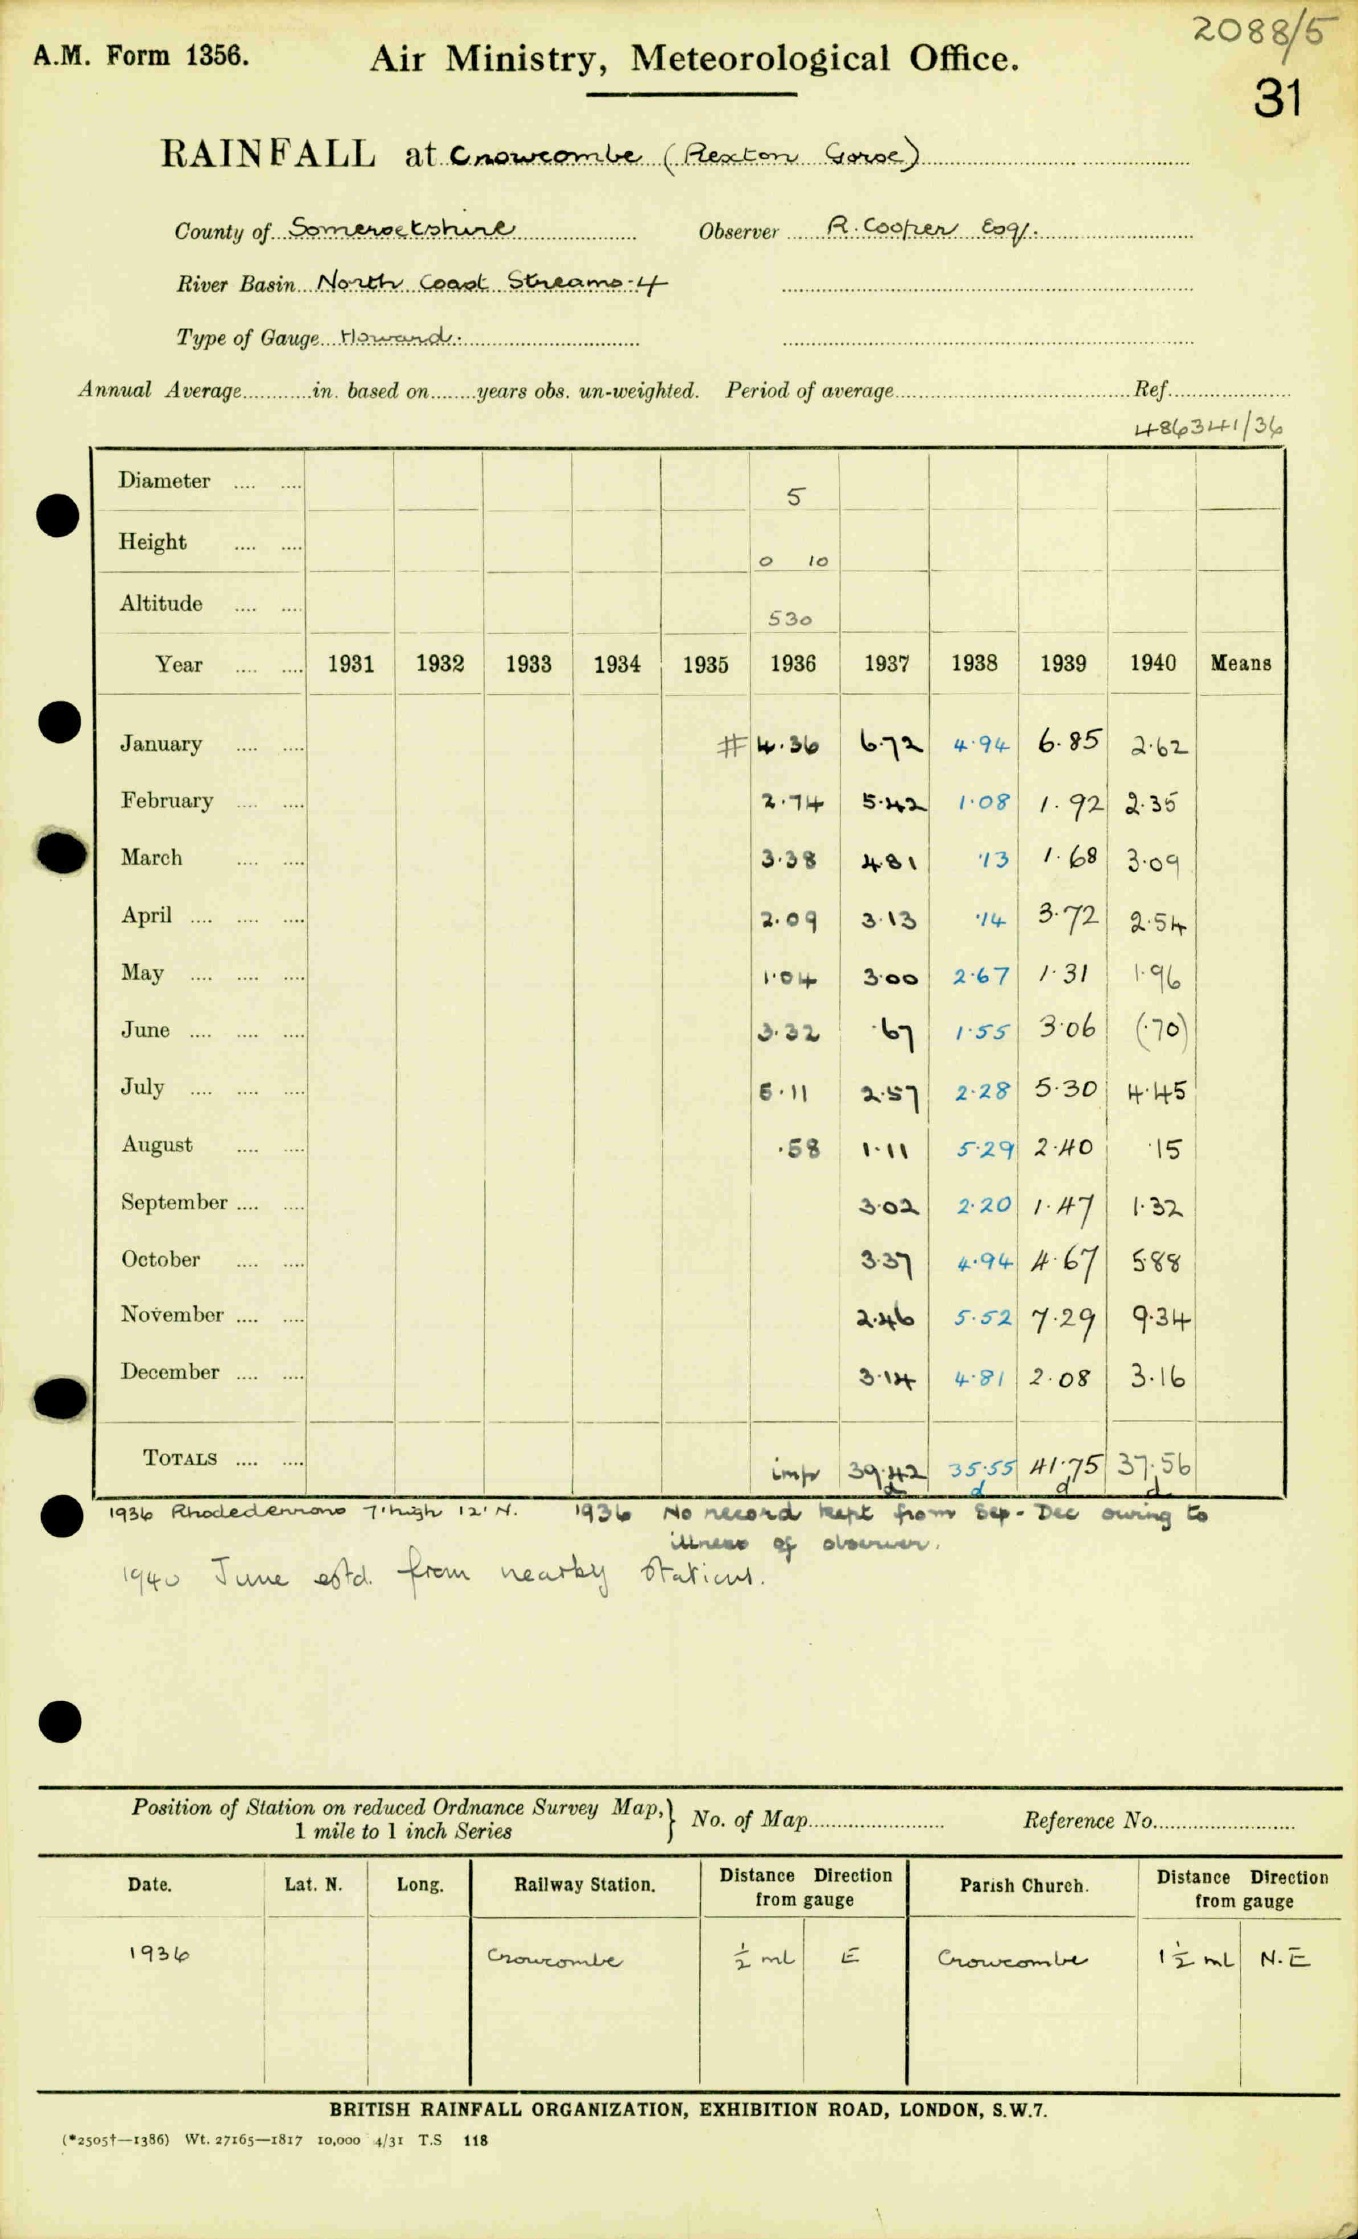 2088/5
A.M. Form 1356. Air Ministry, Meteorological Office.
31
RAINFALL at Crowcombe (Rexton Gorse)
County of Somersetshire Observer R. Cooper Esq.
River Basin North Coast Streams-4
Type of Gauge Howard.
Annual Average in. based on years obs. un-weighted. Period of average Ref.
486341/36
Diameter .... .... 5
Height .... .... 0 10
Altitude .... .... 530
Year .... .... 1931 1932 1933 1934 1935 1936 1937 1938 1939 1940 Means
January .... .... # 4.36 6.72 4.94 6.85 2.62
February .... .... 2.74 5.42 1.08 1.92 2.35
March .... .... 3.38 4.81 .13 1.68 3.09
April .... .... .... 2.09 3.13 .14 3.72 2.54
May .... .... .... 1.04 3.00 2.67 1.31 1.96
June .... .... .... 3.32 .67 1.55 3.06 (.70)
July .... .... .... 5.11 2.57 2.28 5.30 4.45
August .... .... .58 1.11 5.29 2.40 .15
September .... .... 3.02 2.20 1.47 1.32
October .... .... 3.37 4.94 4.67 5.88
November .... .... 2.46 5.52 7.29 9.34
December .... .... 3.14 4.81 2.08 3.16
TOTALS .... .... imp 39.42 35.55 41.75 37.56
d d d d
1936 Rhodedenrons 7' high 12' N. 1936 No record kept from Sep - Dec owing to
illness of observer.
1940 June estd. from nearby stations.
Position of Station on reduced Ordnance Survey Map, } No. of Map Reference No.
1 mile to 1 inch Series
Date. Lat. N. Long. Railway Station. Distance Direction from gauge Parish Church. Distance Direction from gauge
1936 Crowcombe ½ ml E Crowcombe 1½ ml N.E
BRITISH RAINFALL ORGANIZATION, EXHIBITION ROAD, LONDON, S.W.7.
(*2505†—1386) Wt. 27165—1817 10,000 4/31 T.S 118